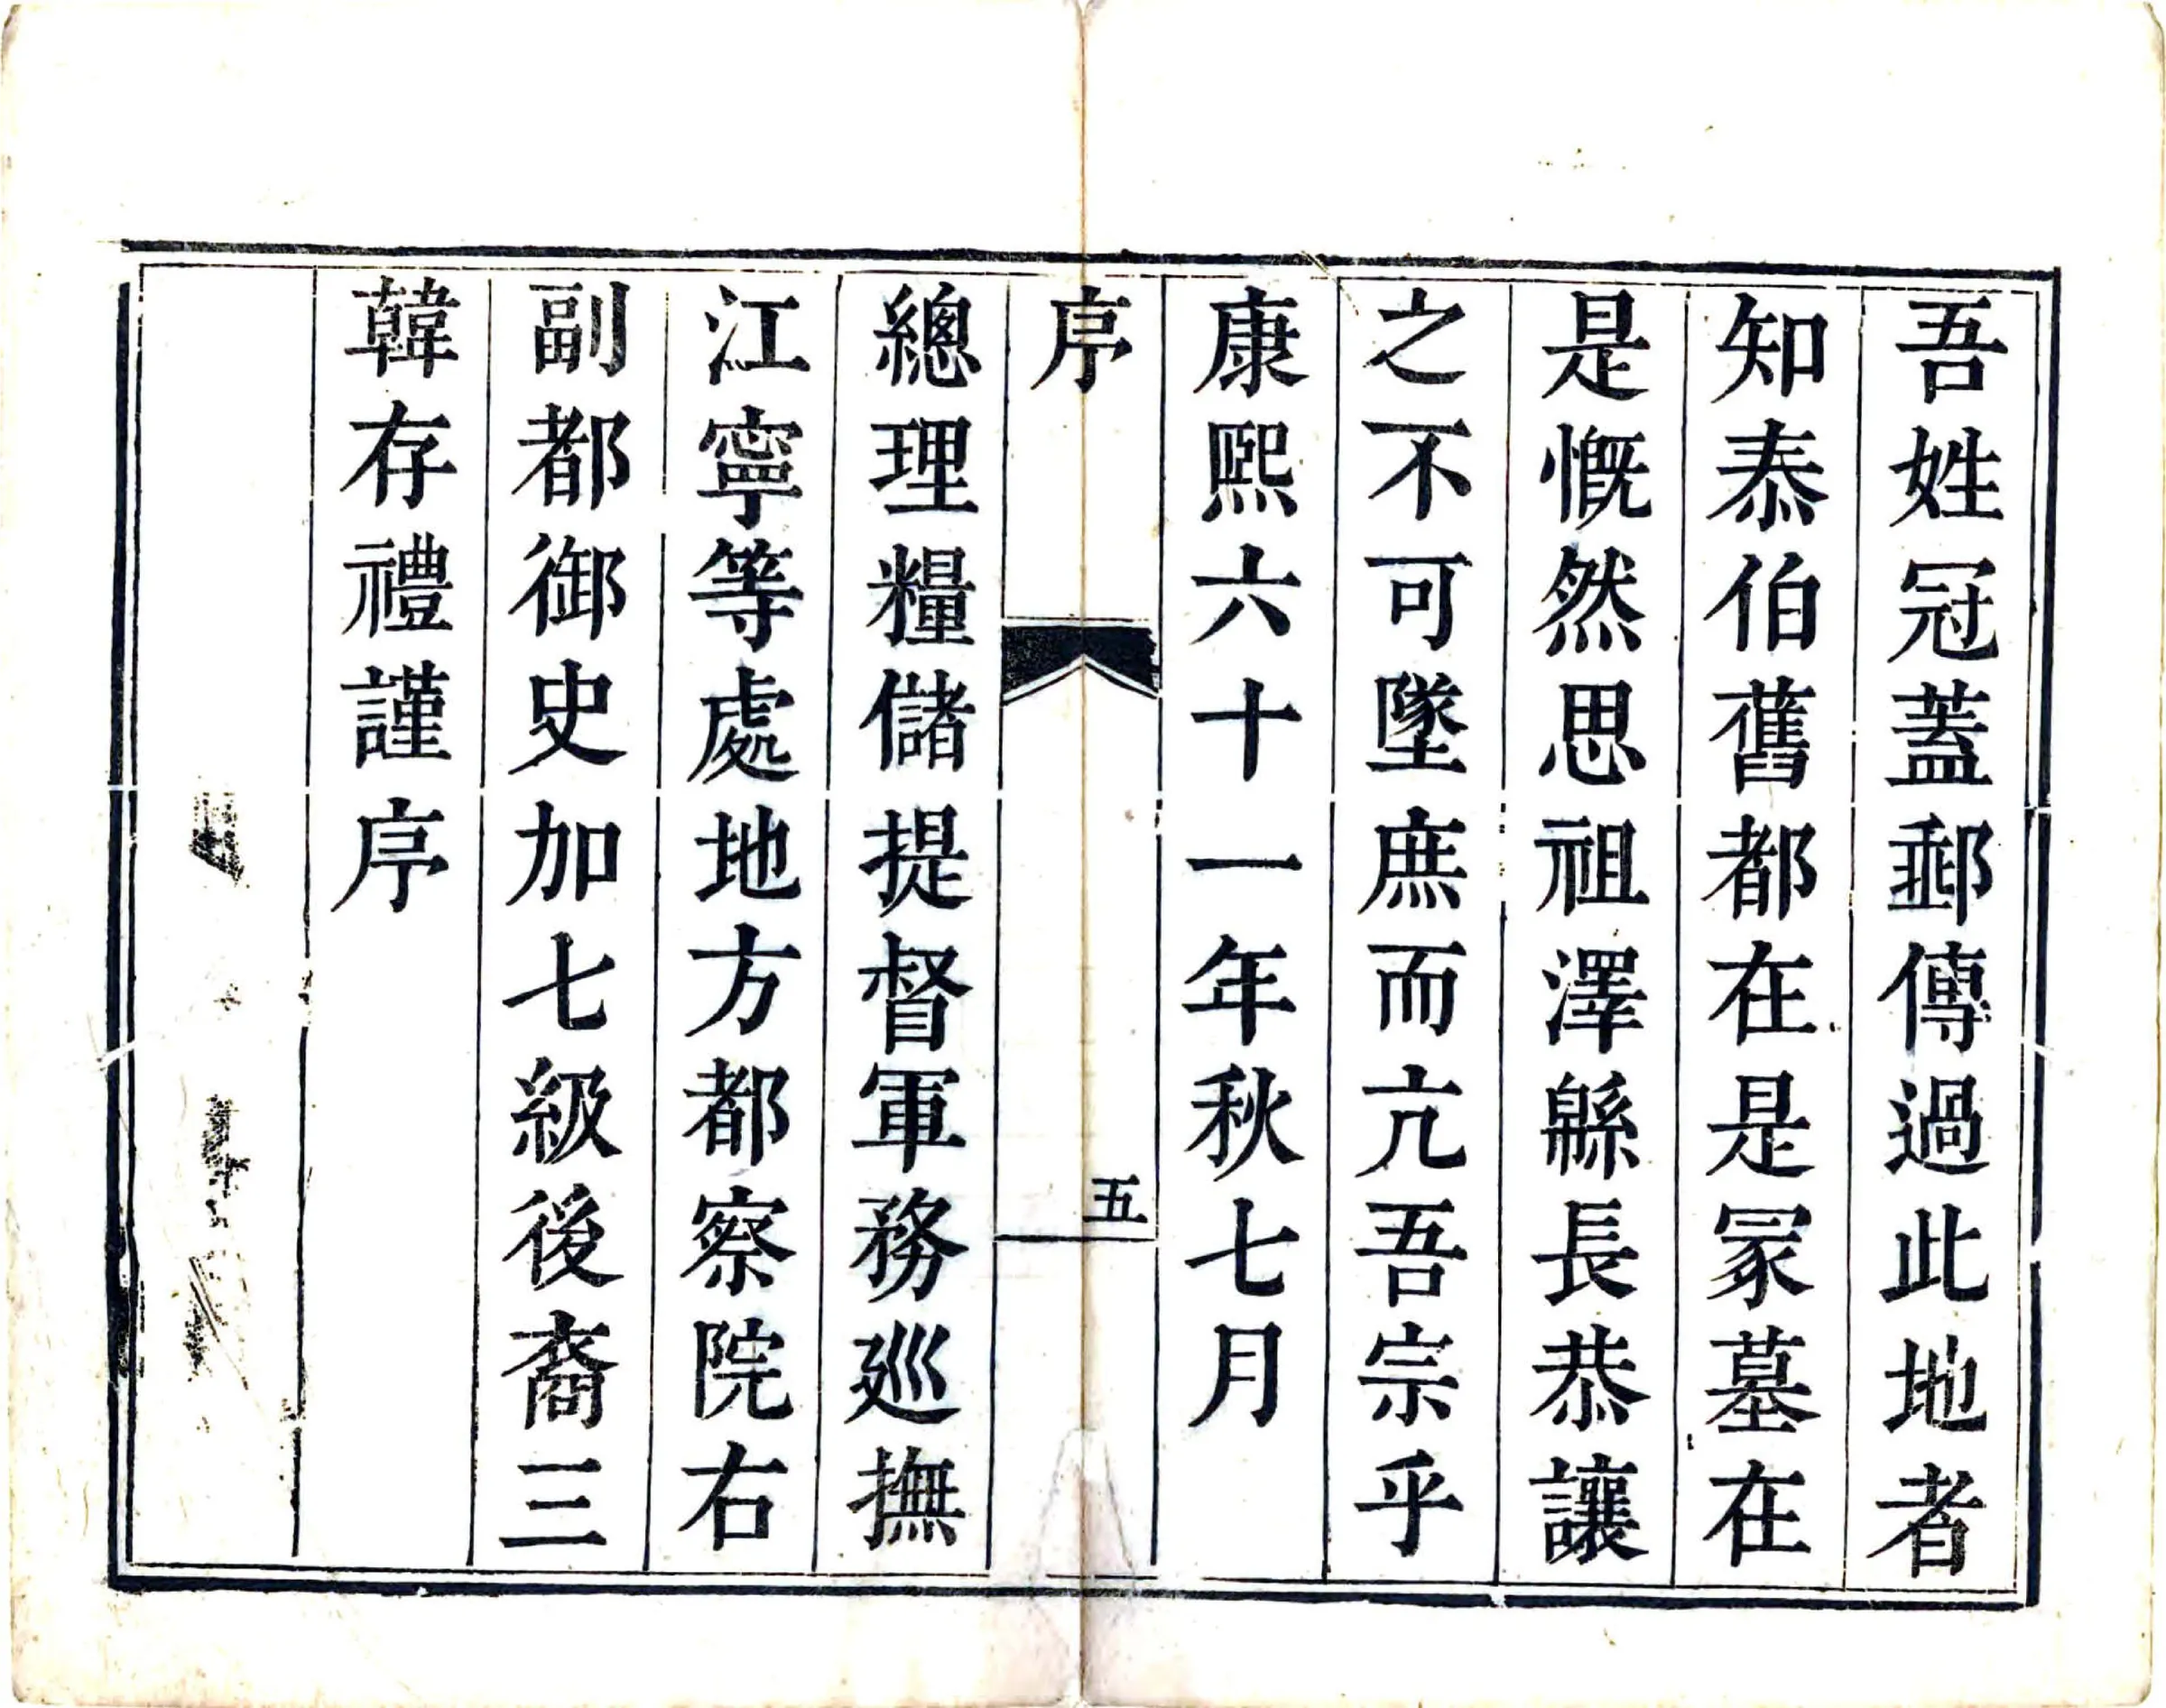 吾姓冠蓋郵傳過此地者
知泰伯舊都在是冡墓在
是慨然思祖澤緜長恭讓
之不可墜庶而亢吾宗乎
康熙六十一年秋七月
序
五
總理糧儲提督軍務巡撫
江寧等處地方都察院右
副都御史加七級後裔三
韓存禮謹序